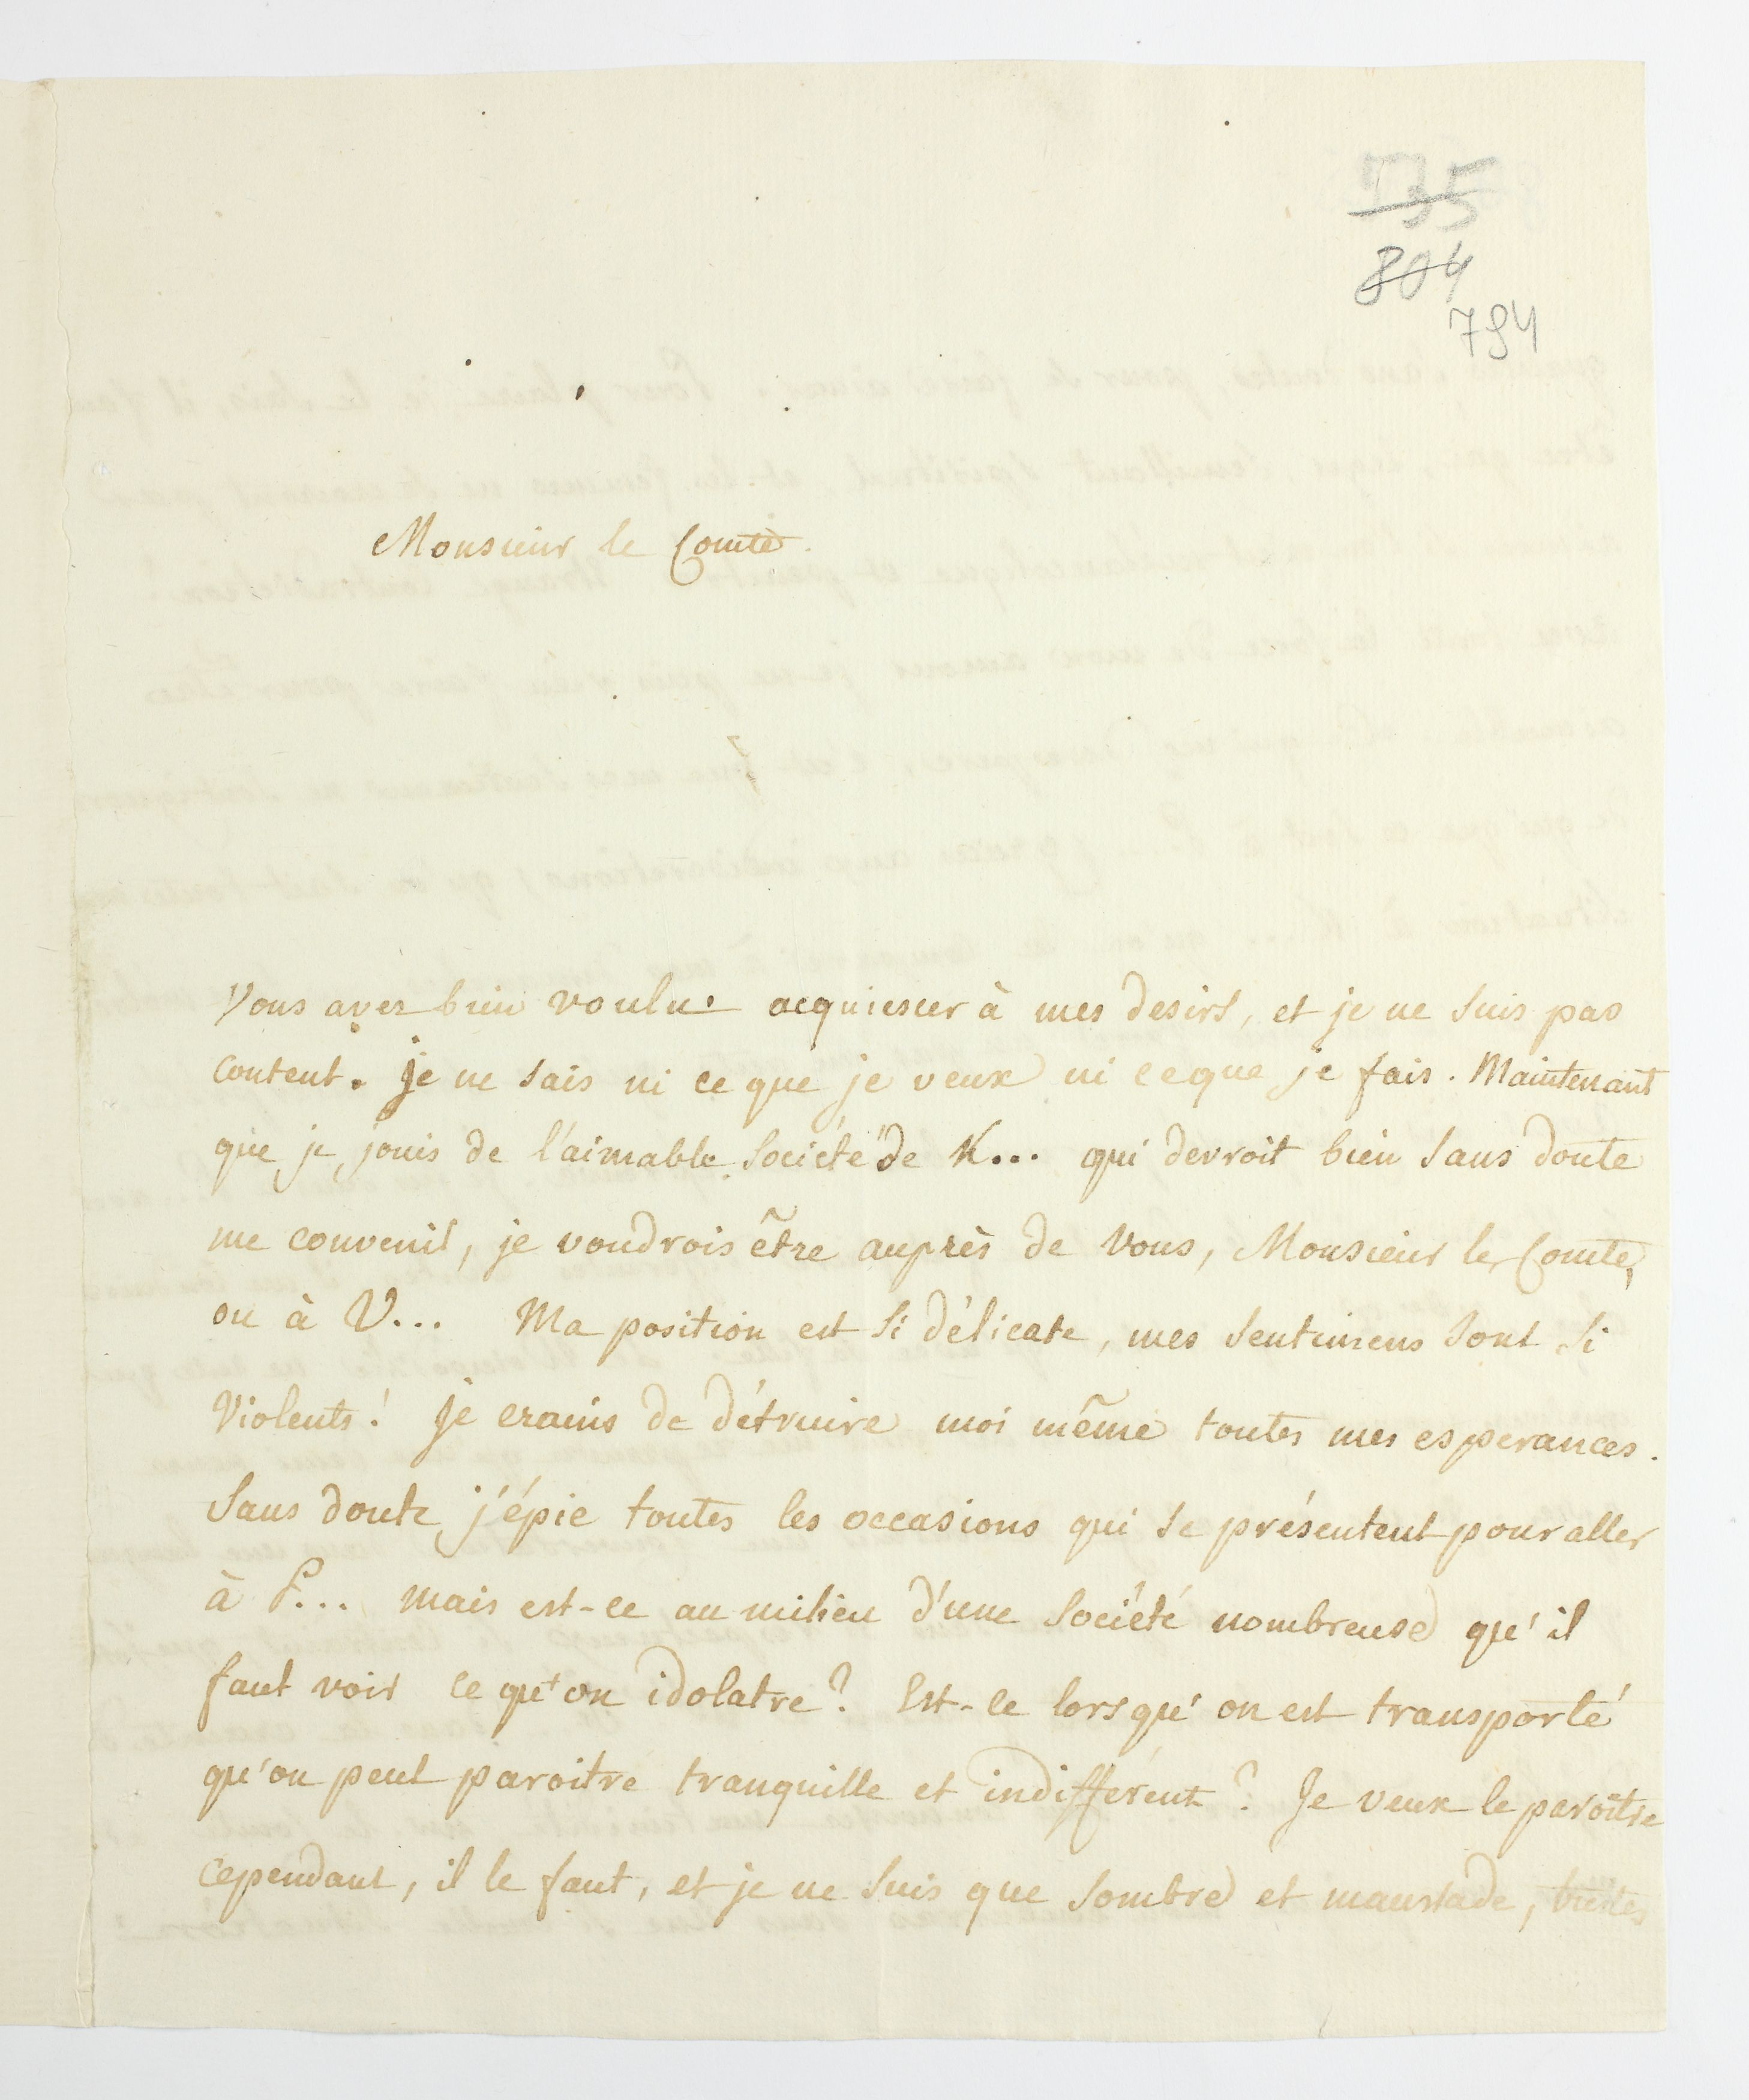 735
804
794
Monsieur le Comte.
Vous avez bien voulu acquiescer à mes desirs, et je ne suis pas
content. Je ne sais ni ce que je veux ni ce que je fais. Maintenant
que je jouis de l'aimable Société de K... qui devroit bien sans doute
me convenir, je voudrois être auprès de vous, Monsieur le Comte,
ou à V... Ma position est si délicate, mes sentimens sont si
violents! Je crains de détruire moi même toutes mes esperances.
Sans doute j'épie toutes les occasions qui se présentent pour aller
à P... mais est-ce au milieu d'une Société nombreuse qu'il
faut voir ce qu'on idolatre? Est-ce lorsqu'on est transporté
qu'on peut paroitre tranquille et indifférent? Je veux le paroître
cependant, il le faut, et je ne suis que sombre et maussade, tristes